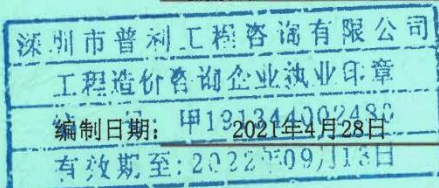 深圳市普利工程咨询有限公司
工程造价咨询企业执业印章
编制日期: 2021年4月28日
有效期至:2022年09月13日